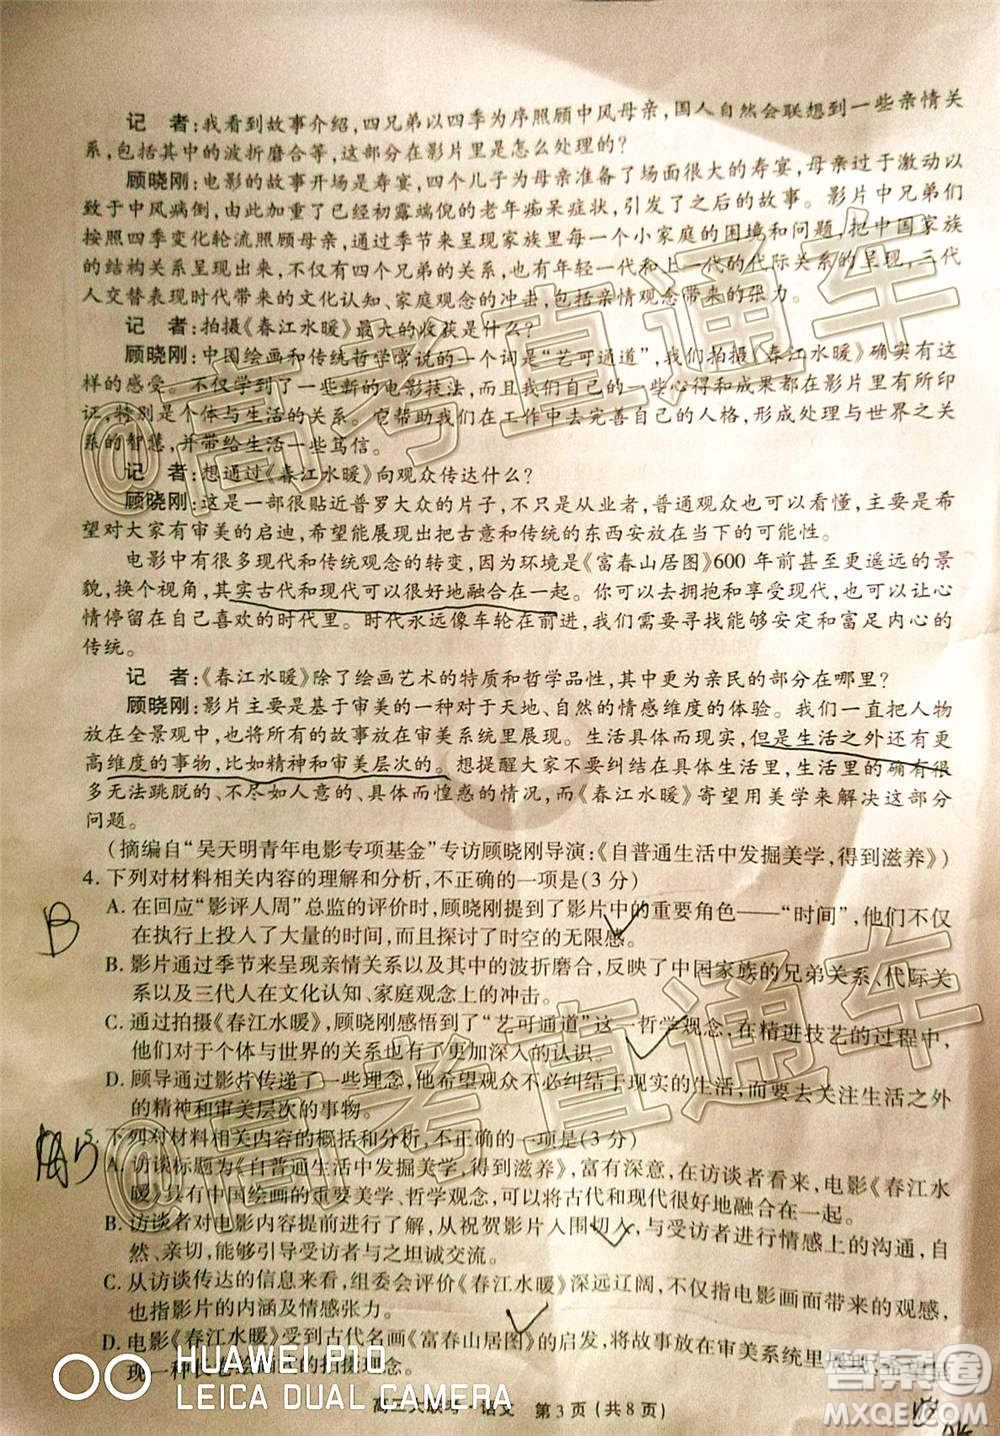 记　者:我看到故事介绍,四兄弟以四季为序照顾中风母亲,国人自然会联想到一些亲情关
系,包括其中的波折磨合等,这部分在影片里是怎么处理的?
顾晓刚:电影的故事开场是寿宴,四个儿子为母亲准备了场面很大的寿宴,母亲过于激动以
致于中风病倒,加重了已经初露端倪的老年痴呆症状,引发了之后的故事。影片中兄弟们
按照四季变化轮流照顾母亲,通过季节来呈现家族里每一个小家庭的困境和问题,把中国家族
的结构关系呈现出来,不仅有四兄弟的关系,也有年轻一代和上一代的代际关系的呈现,三代
人交替表现时代带来的文化认知、家庭观念的冲击,包括亲情观念带来的张力。
记　者:拍摄《春江水暖》最大的收获是什么?
顾晓刚:中国绘画和传统哲学常说的一个词是“艺可通道”,我们拍摄《春江水暖》确实有这
样的感受。不仅学到了一些新的电影技法,而且我们自己的一些心得和成果都在影片里有所印
证,特别是个体与生活的关系。它帮助我们在工作中去完善自己的人格,形成处理与世界之关
系的智慧,并带给生活一些笃信。
记　者:想通过《春江水暖》向观众传达什么?
顾晓刚:这是一部很贴近普罗大众的片子,不只是从业者,普通观众也可以看懂,主要是希
望对大家有审美的启迪,希望能展现出把古意和传统的东西安放在当下的可能性。
电影中有很多现代和传统观念的转变,因为环境是《富春山居图》600年前甚至更遥远的景
貌,换个视角,其实古代和现代可以很好地融合在一起。你可以去拥抱和享受现代,也可以让心
情停留在自己喜欢的时代里。时代永远像车轮在前进,我们需要的是能够安定和富足内心的
传统。
记　者:《春江水暖》除了绘画艺术的特质和哲学品性,其中更为亲民的部分在哪里?
顾晓刚:影片主要是基于审美的一种对于天地、自然的情感维度的体验。我们一直把人物
放在全景观中,也努力把故事放在审美系统里展现。生活具体而现实,但是生活之外还有更
高维度的事物,比如精神和审美层次的。想提醒大家不要纠结在生活里,生活里的确有很
多无法跳脱的、不尽如人意的、具体而惶惑的情况,而《春江水暖》寄望用美学来解决这部分
问题。
(摘编自“吴天明青年电影专项基金”专访顾晓刚导演:《自普通生活中发掘美学,得到滋养》)
4. 下列对材料相关内容的理解和分析,不正确的一项是(3分)
B
A. 在回应“影评人周”总监的评价时,顾晓刚提到了影片中的重要角色——“时间”,他们不仅
在执行上投入了大量的时间,而且探讨了时空的无限感。
B. 影片通过季节来呈现亲情关系以及其中的波折磨合,反映了中国家族的兄弟关系、代际关
系以及三代人在文化认知、家庭观念上的冲击。
C. 通过拍摄《春江水暖》,顾晓刚感悟到了“艺可通道”这一哲学观念,在精进技艺的过程中,
他们对个体与世界的关系有更加深入的认识。
D. 顾导通过影片传递了一些理念,他希望观众不必纠结于现实的生活,而要去关注生活之外
的精神和审美层次的事物。
5. 下列对材料相关内容的概括和分析,不正确的一项是(3分)
A. 访谈标题为《自普通生活中发掘美学,得到滋养》,富有深意,在访谈者看来,电影《春江水
暖》具有中国绘画的重要美学、哲学观念,可以将古代和现代很好地融合在一起。
B. 访谈者对电影内容提前进行了解,从祝贺影片入围切入,与受访者进行情感上的沟通,自
然、亲切,能够引导受访者与之坦诚交流。
C. 从访谈传达的信息来看,组委会评价《春江水暖》深远辽阔,不仅指电影画面带来的观感,
也指影片的内涵及情感张力。
D. 电影《春江水暖》受到古代名画《富春山居图》的启发,将故事放在审美系统里展现,
现一种类似绘画的拍摄观念。
高三大联考·语文　第3页(共8页)
@高考直通车
@高考直通车
HUAWEI P10
LEICA DUAL CAMERA
答案圈